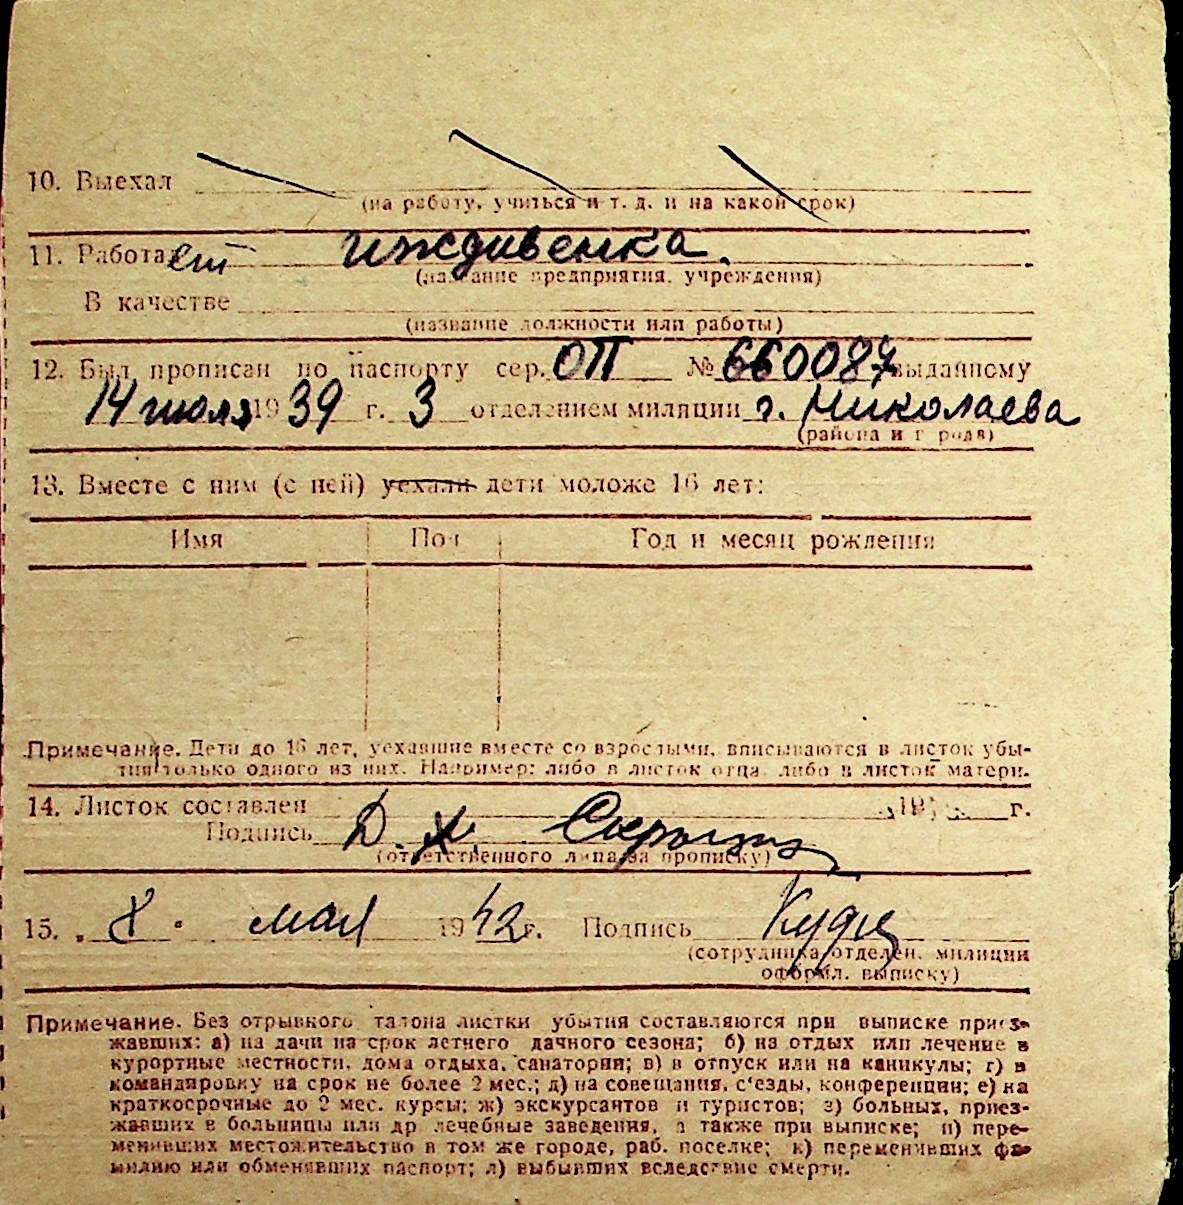 10. Выехал
(на работу, учиться и т. д. и на какой срок)
11. Работает иждивенка.
(название предприятия, учреждения)
В качестве
(название должности или работы)
12. Был прописан по паспорту сер. ОП № 660087 выданному
14 июля 1939 г. 3 отделением милиции г. Николаева
(района и города)
13. Вместе с ним (с ней) уехали дети моложе 16 лет:
Имя Пол Год и месяц рождения
Примечание. Дети до 16 лет, уехавшие вместе со взрослыми, вписываются в листок убы-
тия только одного из них. Например: либо в листок отца, либо в листок матери.
14. Листок составлен 19 г.
Подпись Д. Х.
(ответственного лица за прописку)
15. 8 мая 1942 г. Подпись
(сотрудника отделен. милиции
оформл. выписку)
Примечание. Без отрывного талона листки убытия составляются при выписке приез-
жавших: а) на дачи на срок летнего дачного сезона; б) на отдых или лечение в
курортные местности, дома отдыха, санатории; в) в отпуск или на каникулы; г) в
командировку на срок не более 2 мес.; д) на совещания, с'езды, конференции; е) на
краткосрочные до 2 мес. курсы; ж) экскурсантов и туристов; з) больных, приез-
жавших в больницы или др лечебные заведения, а также при выписке; и) пере-
менивших местожительство в том же городе, раб. поселке; к) переменивших фа-
милию или обменявших паспорт; л) выбывших вследствие смерти.